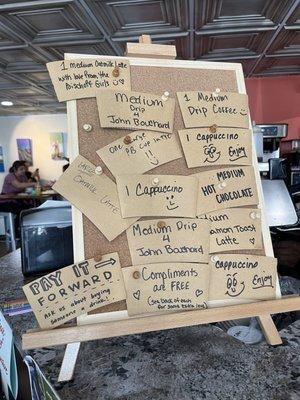 1 medium Oatmilk Latte
with love from the
Bischoff Girls
Medium
Drip
4
John Bouchard
1 Medium
Drip Coffee
one large
PB CUP
Cappuccino
Enjoy
Large
Oatmilk
Latte
1 Cappuccino
MEDIUM
HOT
CHOCOLATE
Medium Drip
4
John Bouchard
Medium Toasted
Oat
Latte
Compliments
are FREE
(see back of each
for some extra luv)
Cappuccino
Enjoy
PAY IT
FORWARD
ASK us about buying
someone a drink!